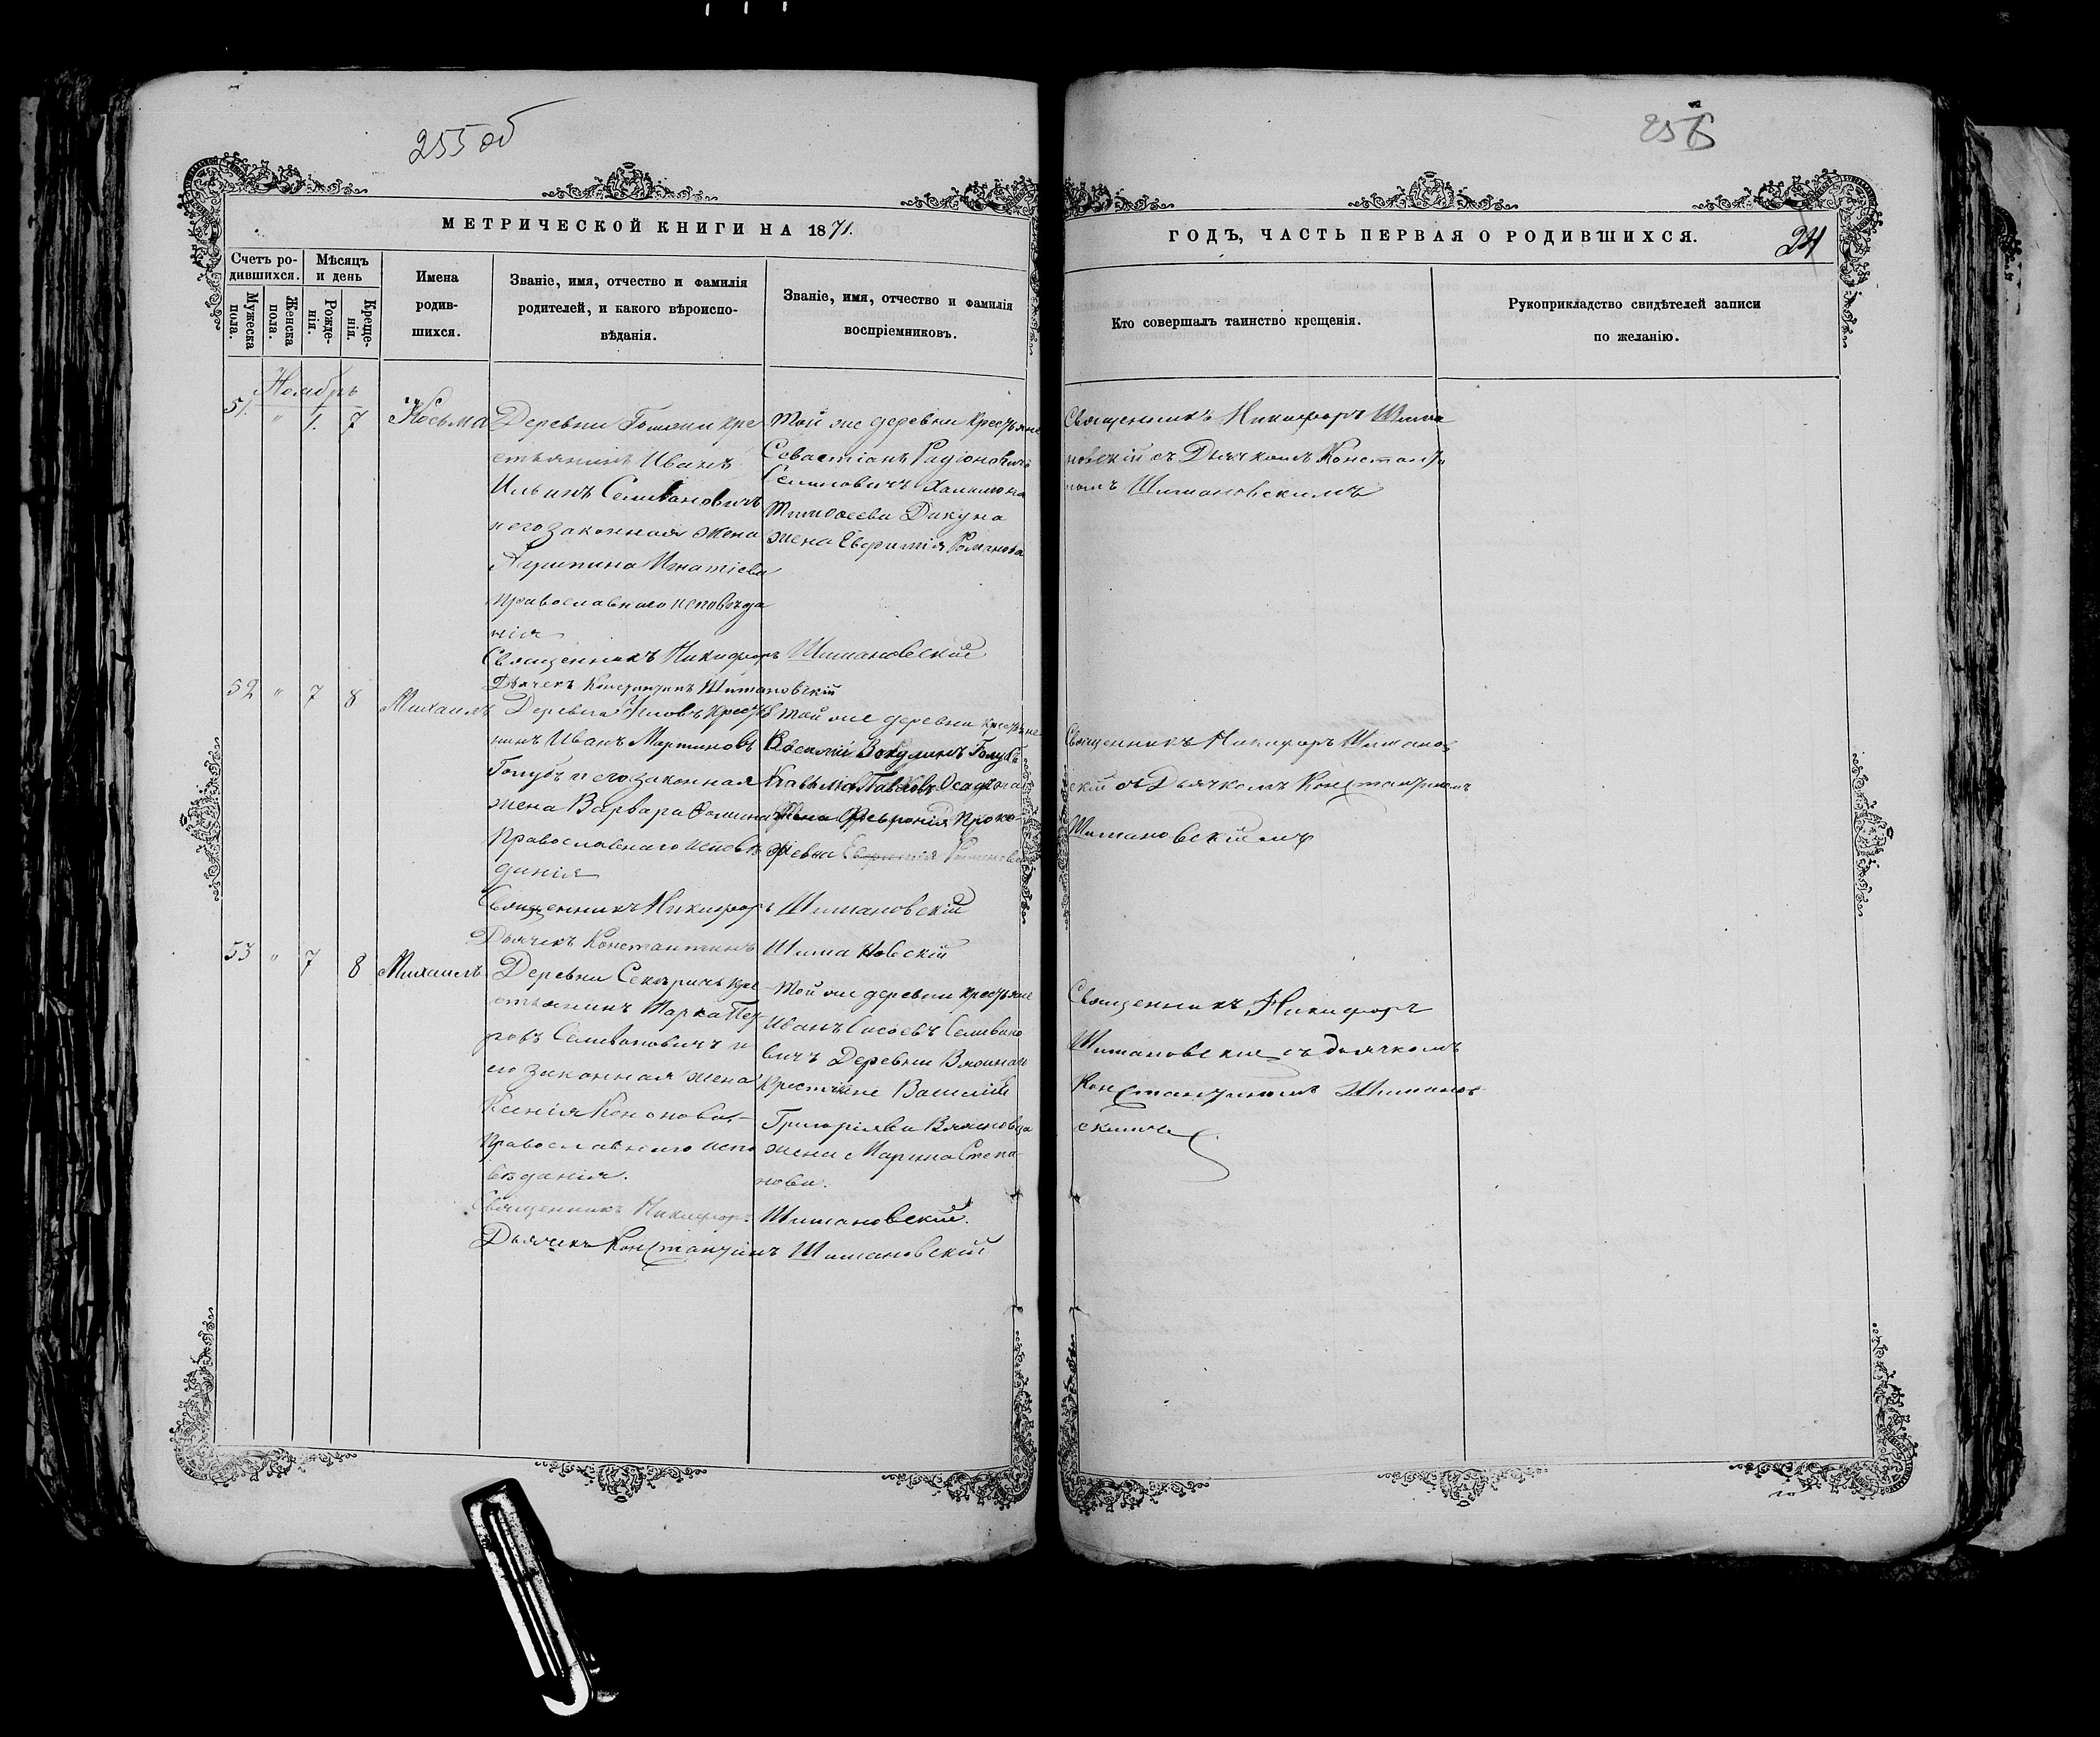 255 об
256
МЕТРИЧЕСКОЙ КНИГИ НА 1871.
ГОДЪ, ЧАСТЬ ПЕРВАЯ О РОДИВШИХСЯ.
24
Счетъ родившихся.
Мужеска пола.
Женска пола.
Мѣсяцъ и день
Рожденія.
Крещенія.
Имена
родив-
шихся.
Званіе, имя, отчество и фамилія
родителей, и какого вѣроиспо-
вѣданія.
Званіе, имя, отчество и фамилія
воспріемниковъ.
Кто совершалъ таинство крещенія.
Рукоприкладство свидѣтелей записи
по желанію.
Ноябрь
51. " 1. 7 Косьма
Деревни кре
стьянинъ Иванъ
Ильинъ Селивановичъ
и его законная жена
Игнатіева
православнаго исповѣда
нія
Той же деревни крестьяне
Севастіанъ Радіоновъ
Дикуна
жена Евфимія Романова
Священникъ Никифоръ Шима
новскій съ Дьячкомъ Константи
номъ Шимановскимъ
Священникъ Никифоръ Шимановскій
Дьячекъ Константинъ Шимановскій
52 " 7 8 Михаилъ
Деревни крестья
нинъ Иванъ Мартиновъ
Голубъ и его законная
жена Варвара Фомина
Православнаго исповѣ
данія
Той же деревни крестьяне
Василій Голубъ
жена Февронія Проко-
фьева Евфимія Романова
Священникъ Никифоръ Шиманов
скій съ Дьячкомъ Константиномъ
Шимановскимъ
Священникъ Никифоръ Шимановскій
Дьячекъ Константинъ Шимановскій
53 " 7 8 Михаилъ
Деревни Секиричъ кре
стьянинъ Марко Пет
ровъ Селивановичъ и
его законная жена
Ксенія Кононова
православнаго испо
вѣданія.
Той же деревни крестьяне
Иванъ Сисоевъ Селивано
вичъ Деревни
крестьяне Василій
Григоріева
жена Марина Степа-
нова.
Священникъ Никифоръ
Шимановскій съ дьячкомъ
Константиномъ Шиманов
скимъ.
Священникъ Никифоръ Шимановскій.
Дьячекъ Константинъ Шимановскій